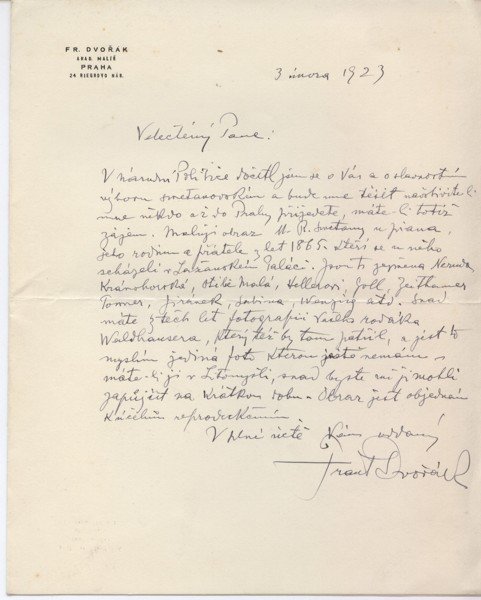 FR. DVOŘÁK
AKAD. MALÍŘ
PRAHA
24 RIEGROVO NÁB.
3 února 1923
Velectěný Pane!
V národní Politice dočetl jsem se o Vás a o slavnostním
výboru smetanovském a bude mne těšit navštívíte-li
mne někdo až do Prahy přijedete, máte-li totiž
zájem. Maluji obraz M. B. Smetany u piana,
jeho rodinu a přátele z let 1865 kteří se u něho
scházeli v Lažanském Paláci. Jsou ti zejména Neruda
Krásnohorská, Otilie Malá, Hellerovi, Goll, Zeithamer
Tonner, Jiránek, Sabina, Wenzig atd. Snad
máte z těch let fotografii Vašeho rodáka
Waldhausera, který též by tam patřil, a jest to
myslím jediná fot. kterou ještě nemám,
máte-li ji v Litomyšli, snad byste mi ji mohli
zapůjčit na krátkou dobu. Obraz jest objednán
k účelům reprodukčním.
V plné úctě Vám oddaný
Frant Dvořák